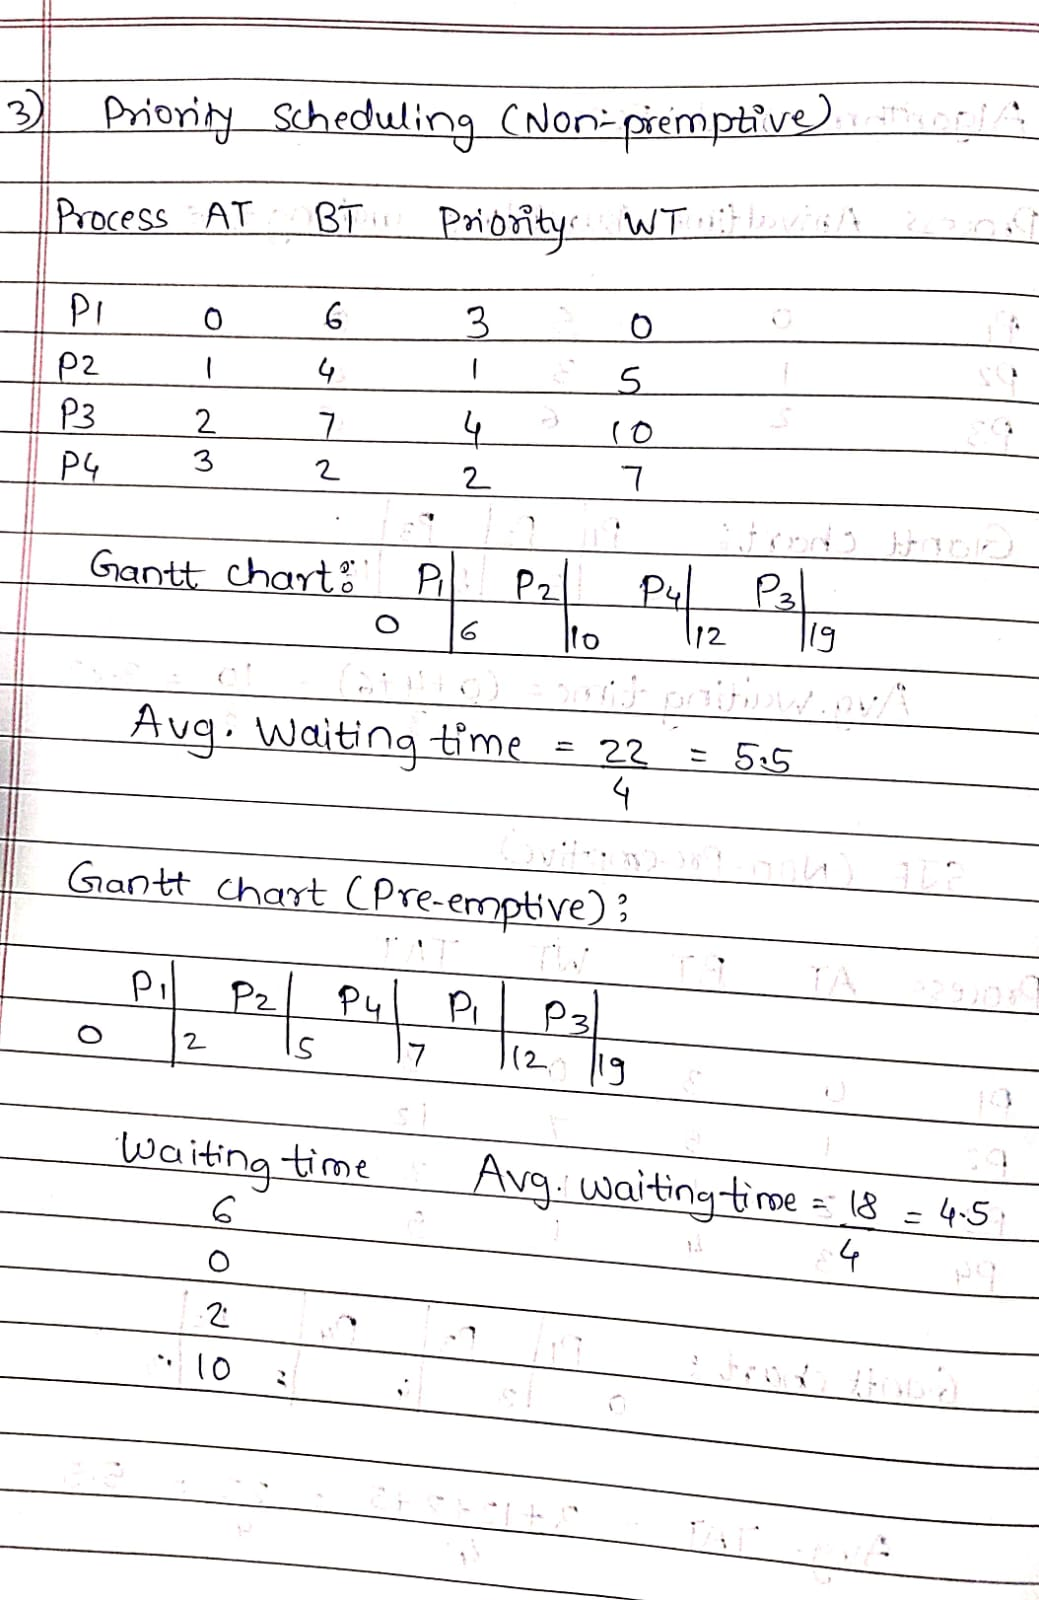 3) Priority Scheduling (Non-premptive)
Process AT BT Priority WT
P1 0 6 3 0
P2 1 4 1 5
P3 2 7 4 10
P4 3 2 2 7
Gantt chart: P1 P2 P4 P3
0 6 10 12 19
Avg. Waiting time = 22/4 = 5.5
Gantt chart (Pre-emptive):
P1 P2 P4 P1 P3
0 2 5 7 12 19
Waiting time Avg. waiting time = 18/4 = 4.5
6
0
2
10